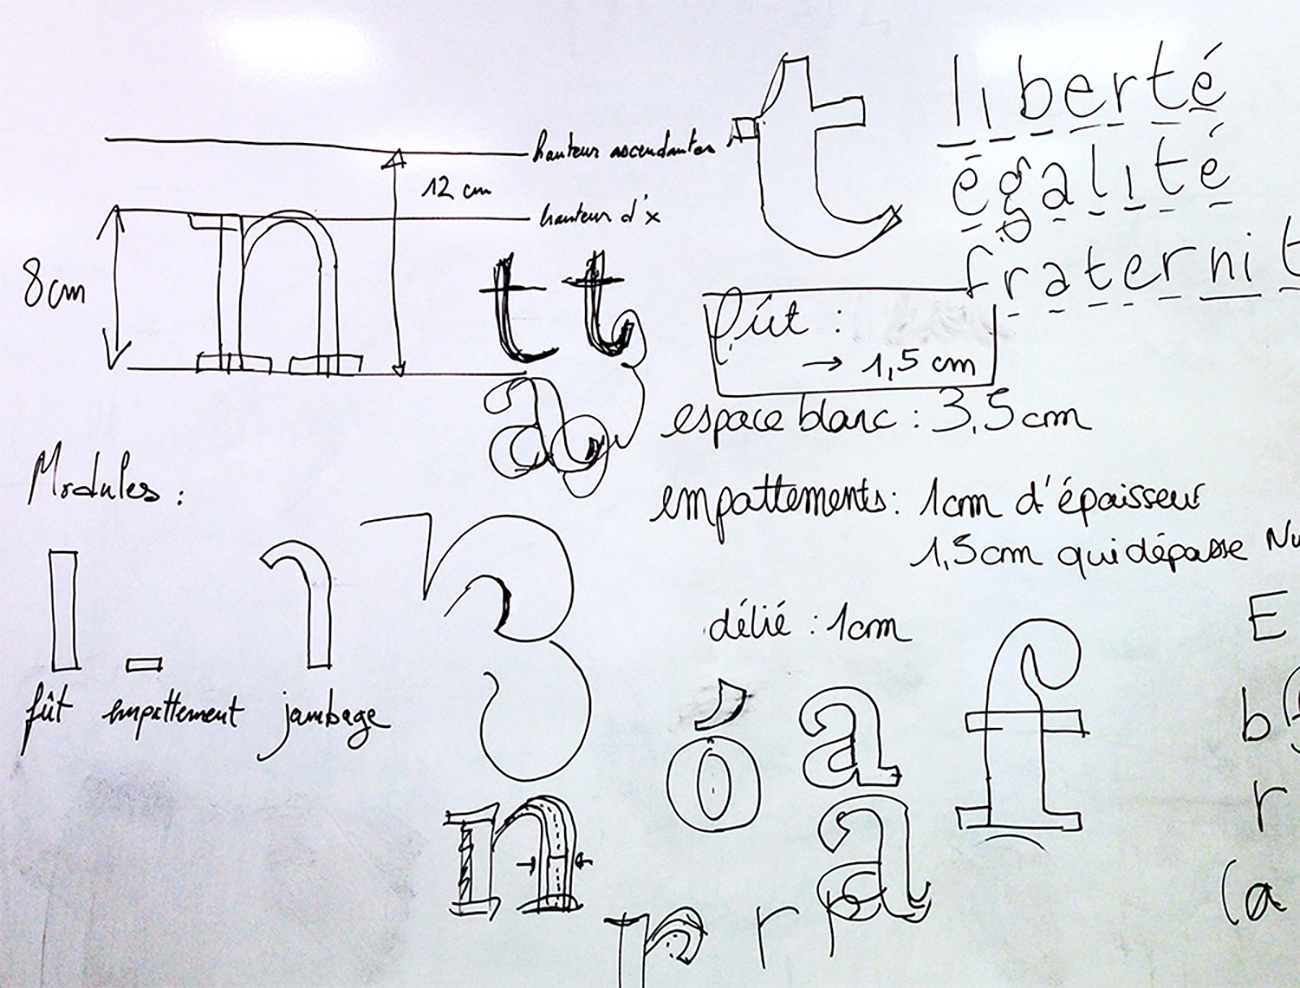 hauteur ascendantes
12 cm
hauteur d'x
8cm
n
t t
a
t
liberté
égalité
fraternit
fût :
→ 1,5 cm
espace blanc : 3,5 cm
empattements : 1cm d'épaisseur
1,5cm qui dépasse Nu
délié : 1cm
Modules :
fût empattement jambage
3
o a f
n a
r r r
E
b
r
(a